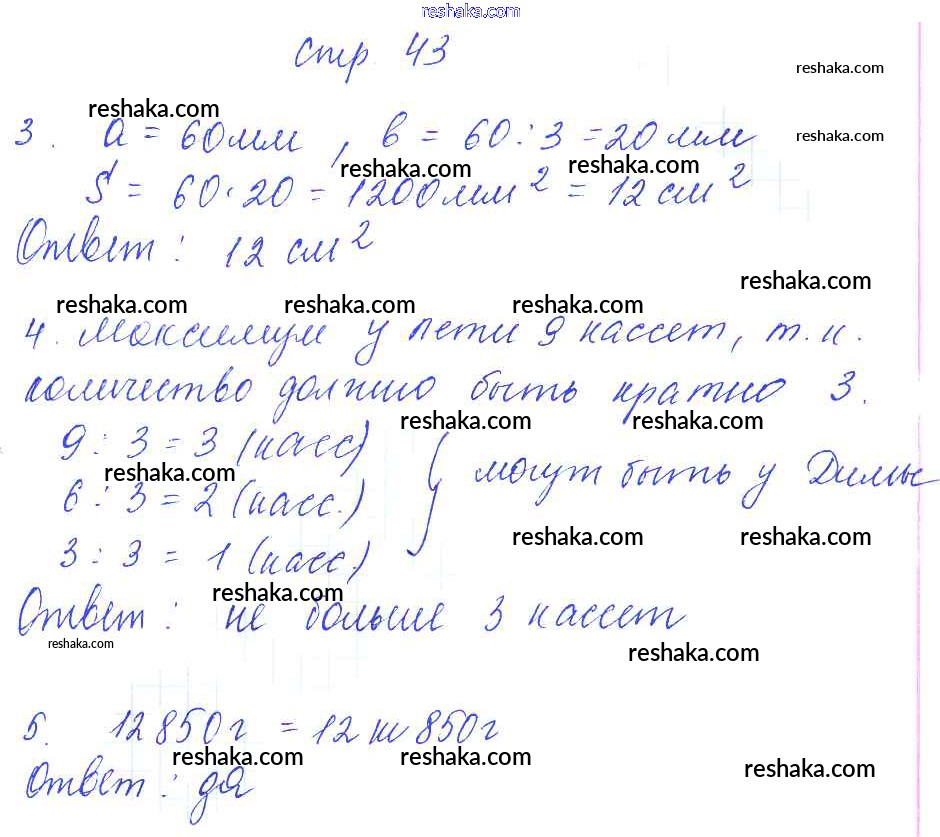 reshaka.com
стр. 43
reshaka.com
reshaka.com
3. a = 60мм, b = 60:3=20мм
reshaka.com
reshaka.com reshaka.com
S = 60·20 = 1200мм² = 12см²
Ответ: 12 см²
reshaka.com
reshaka.com reshaka.com reshaka.com
4. Максимум у пети 9 кассет, т.к.
количество должно быть кратно 3.
reshaka.com reshaka.com
9:3=3 (касс)
reshaka.com
могут быть у Димы
6:3=2 (касс.)
reshaka.com reshaka.com
3:3=1 (касс.)
reshaka.com
Ответ: не больше 3 кассет
reshaka.com
reshaka.com
5. 12850г = 12кг 850г
reshaka.com reshaka.com
reshaka.com
Ответ: да